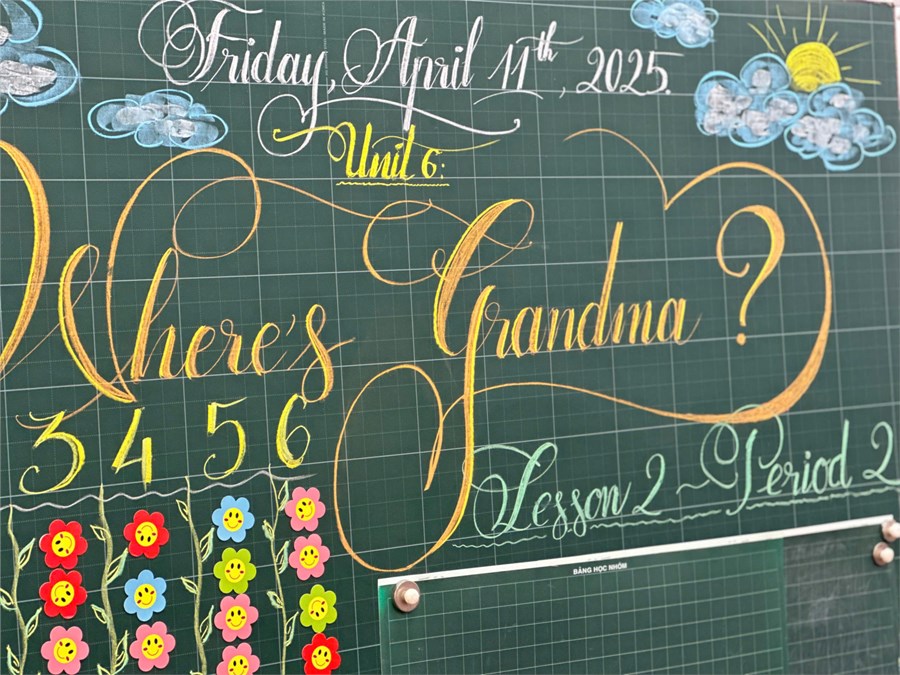 Friday, April 11th, 2025.
Unit 6:
Where's Grandma?
3 4 5 6
Lesson 2 ~ Period 2
BẢNG HỌC NHÓM